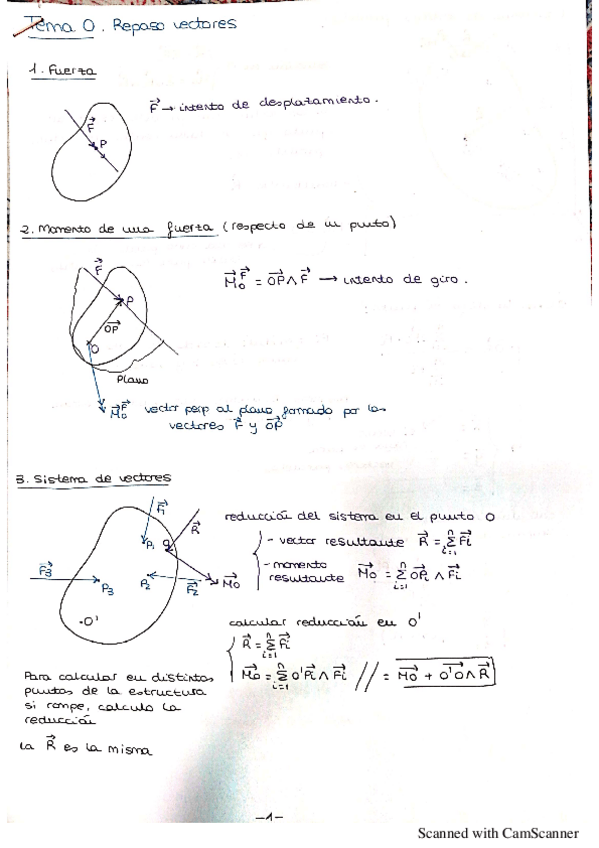 Tema 0. Repaso vectores
1. Fuerza
F⃗ → intento de desplazamiento.
F⃗
P
2. Momento de una fuerza (respecto de un punto)
F⃗
P
OP⃗
O
Plano
M⃗₀^F⃗ = OP⃗ ∧ F⃗ → intento de giro.
M⃗₀^F⃗ vector perp al plano formado por los
vectores F⃗ y OP⃗
3. Sistema de vectores
F⃗₁
R⃗
P₁
F⃗₃
P₃
P₂
F⃗₂
M⃗o
·O'
reducción del sistema en el punto O
- vector resultante R⃗ = Σⁿᵢ₌₁ F⃗i
- momento
resultante M⃗o = Σⁿᵢ₌₁ OP⃗i ∧ F⃗i
calcular reducción en O'
R⃗ = Σⁿᵢ₌₁ F⃗i
M⃗o = Σⁿᵢ₌₁ O'P⃗i ∧ F⃗i // = M⃗o + O'O⃗ ∧ R⃗
Para calcular en distintos
puntos de la estructura
si rompe, calculo la
reducción
la R⃗ es la misma
-1-
Scanned with CamScanner